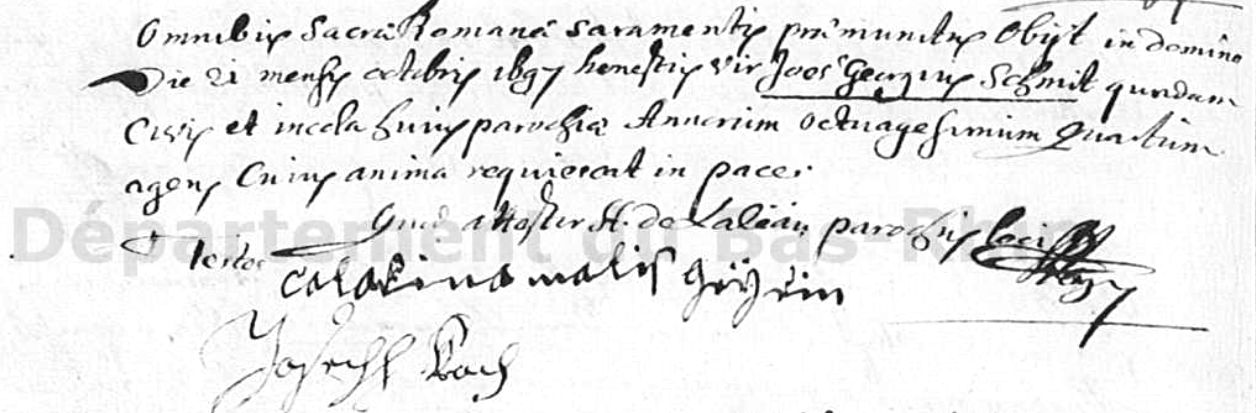 Omnibus Sacra Romana Saramentis præmunitus Obijt in domino
Die 21 mensis octobris 1697 honestus vir Joes Georgius Schmit quondam
Civis et incola huius parochiæ Annorum octuagesimum Quartum
agens Cuius anima requiescat in pace.
Quod attestor H. de Lalëau parochus loci
Département du Bas-Rhin
Testes
Joseph Bach